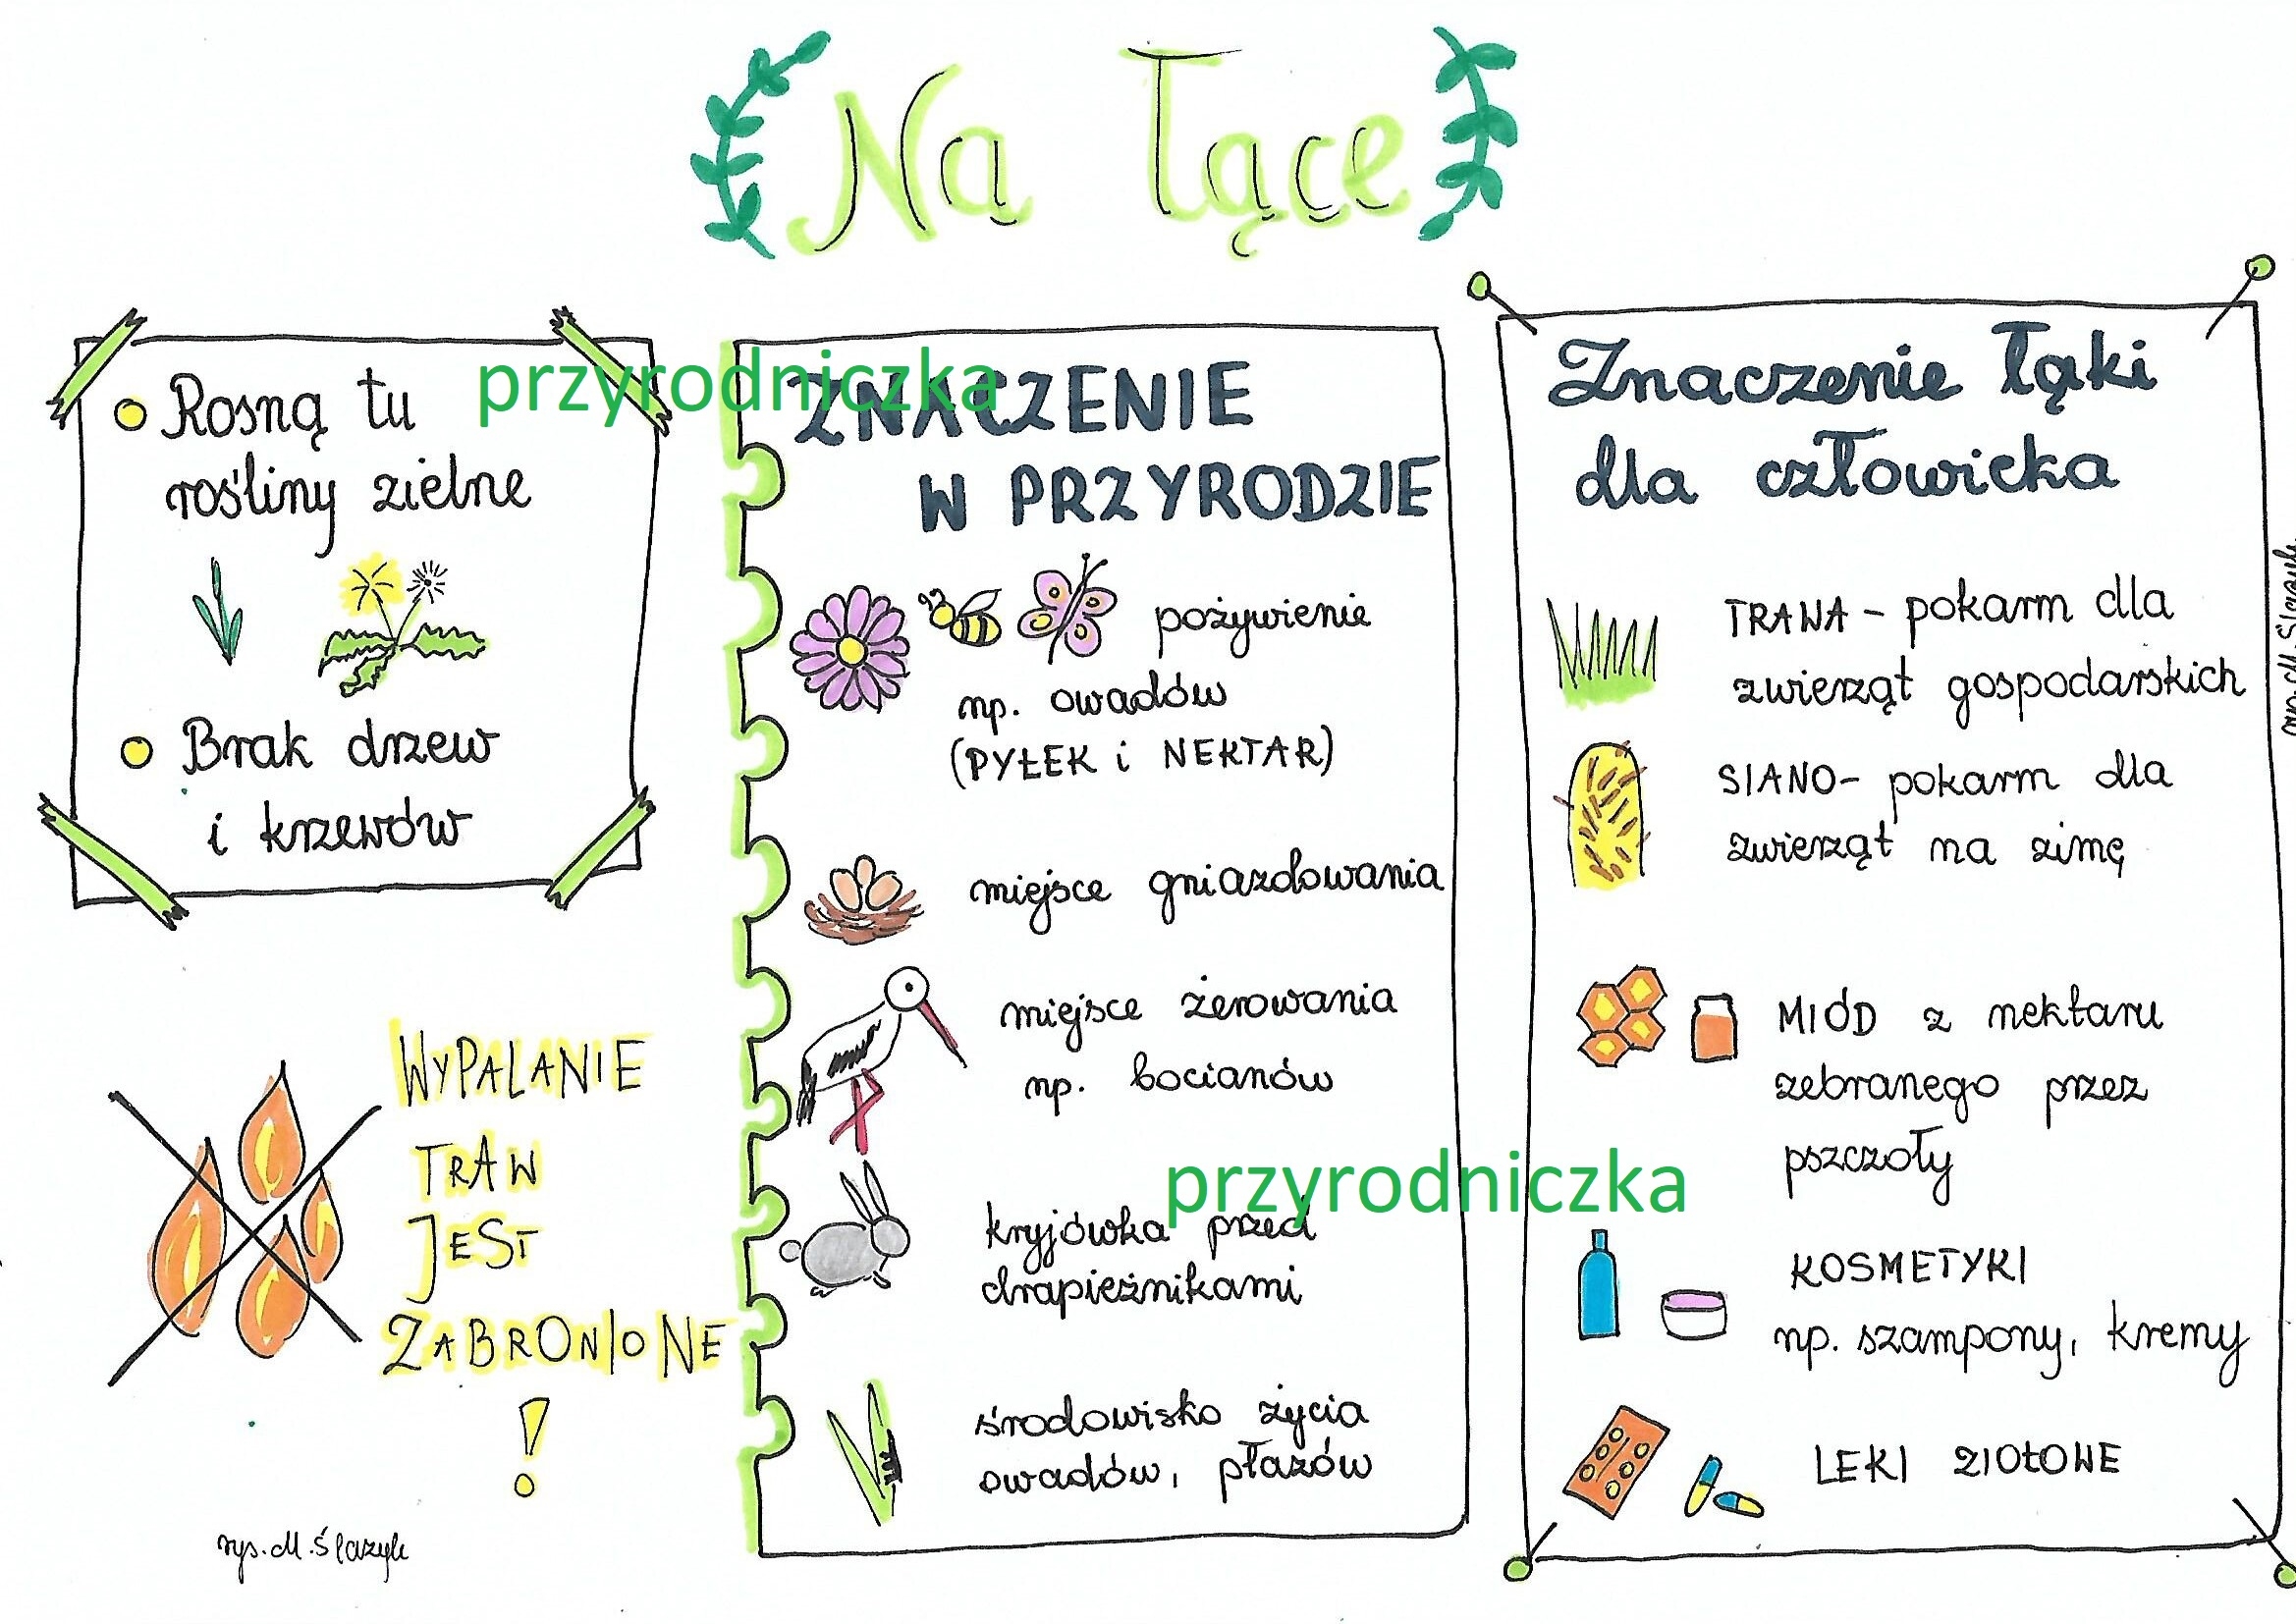 Na łące
przyrodniczka
Rosną tu
rośliny zielne
Brak drzew
i krzewów
WYPALANIE
TRAW
JEST
ZABRONIONE
!
rys. M. Ślazyk
ZNACZENIE
W PRZYRODZIE
pożywienie
np. owadów
(PYŁEK i NEKTAR)
miejsce gniazdowania
miejsce żerowania
np. bocianów
przyrodniczka
kryjówka przed
drapieżnikami
środowisko życia
owadów, płazów
Znaczenie łąki
dla człowieka
TRAWA – pokarm dla
zwierząt gospodarskich
SIANO – pokarm dla
zwierząt na zimę
MIÓD z nektaru
zebranego przez
pszczoły
KOSMETYKI
np. szampony, kremy
LEKI ZIOŁOWE
rys. M. Ślazyk